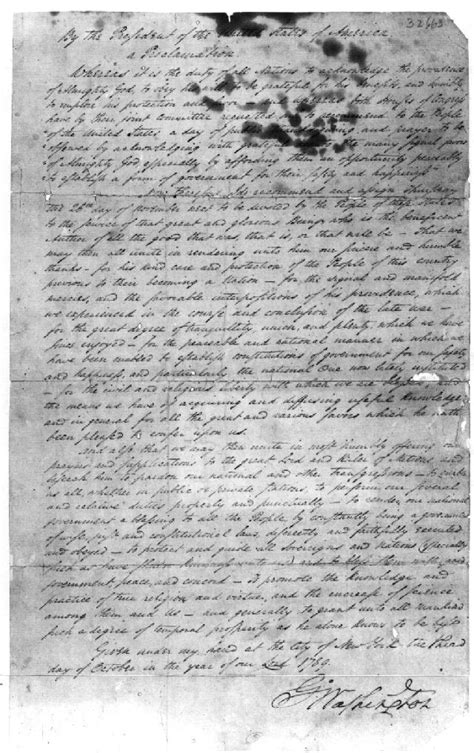 By the President of the United States of America
a Proclamation.
Whereas it is the duty of all Nations to acknowledge the providence
of Almighty God, to obey his will, to be grateful for his benefits, and humbly
to implore his protection and favor and whereas both Houses of Congress
have by their joint Committee requested me to recommend to the People
of the United States a day of public and prayer to be
observed by acknowledging with grateful the many signal favors
of Almighty God especially by affording them an opportunity peaceably
to establish a form of government for their safety and happiness.
Now therefore I do recommend and assign Thursday
the 26th day of November next to be devoted by the People of these States
to the service of that great and glorious Being, who is the beneficent
Author of all the good that was, that is, or that will be - That we
may then all unite in rendering unto him our sincere and humble
thanks - for his kind care and protection of the People of this country
previous to their becoming a Nation - for the signal and manifold
mercies, and the favorable interpositions of his providence, which
we experienced in the course and conclusion of the late war -
for the great degree of tranquillity, union, and plenty, which we have
since enjoyed - for the peaceable and rational manner in which we
have been enabled to establish constitutions of government for our safety
and happiness, and particularly the national One now lately instituted
- for the civil and religious liberty with which we are blessed, and
the means we have of acquiring and diffusing useful knowledge
and in general for all the great and various favors which he hath
been pleased to confer upon us.
And also that we may then unite in most humbly offering our
prayers and supplications to the great Lord and Ruler of Nations and
beseech him to pardon our national and other transgressions - to enable
us all, whether in public or private stations, to perform our several
and relative duties properly and punctually - to render our national
government a blessing to all the People, by constantly being a government
of wise, just and constitutional laws, discreetly and faithfully executed
and obeyed - to protect and guide all Sovereigns and Nations (especially
such as have shewn kindness unto us) and to bless them with good
government, peace, and concord - to promote the knowledge and
practice of true religion and virtue, and the encrease of science
among them and us - and generally to grant unto all mankind
such a degree of temporal prosperity as he alone knows to be best.
Given under my hand at the City of New York the third
day of October in the year of our Lord 1789.
Go Washington